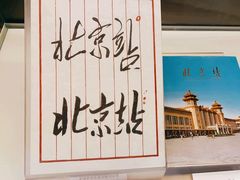 北京站
北京站
北京站